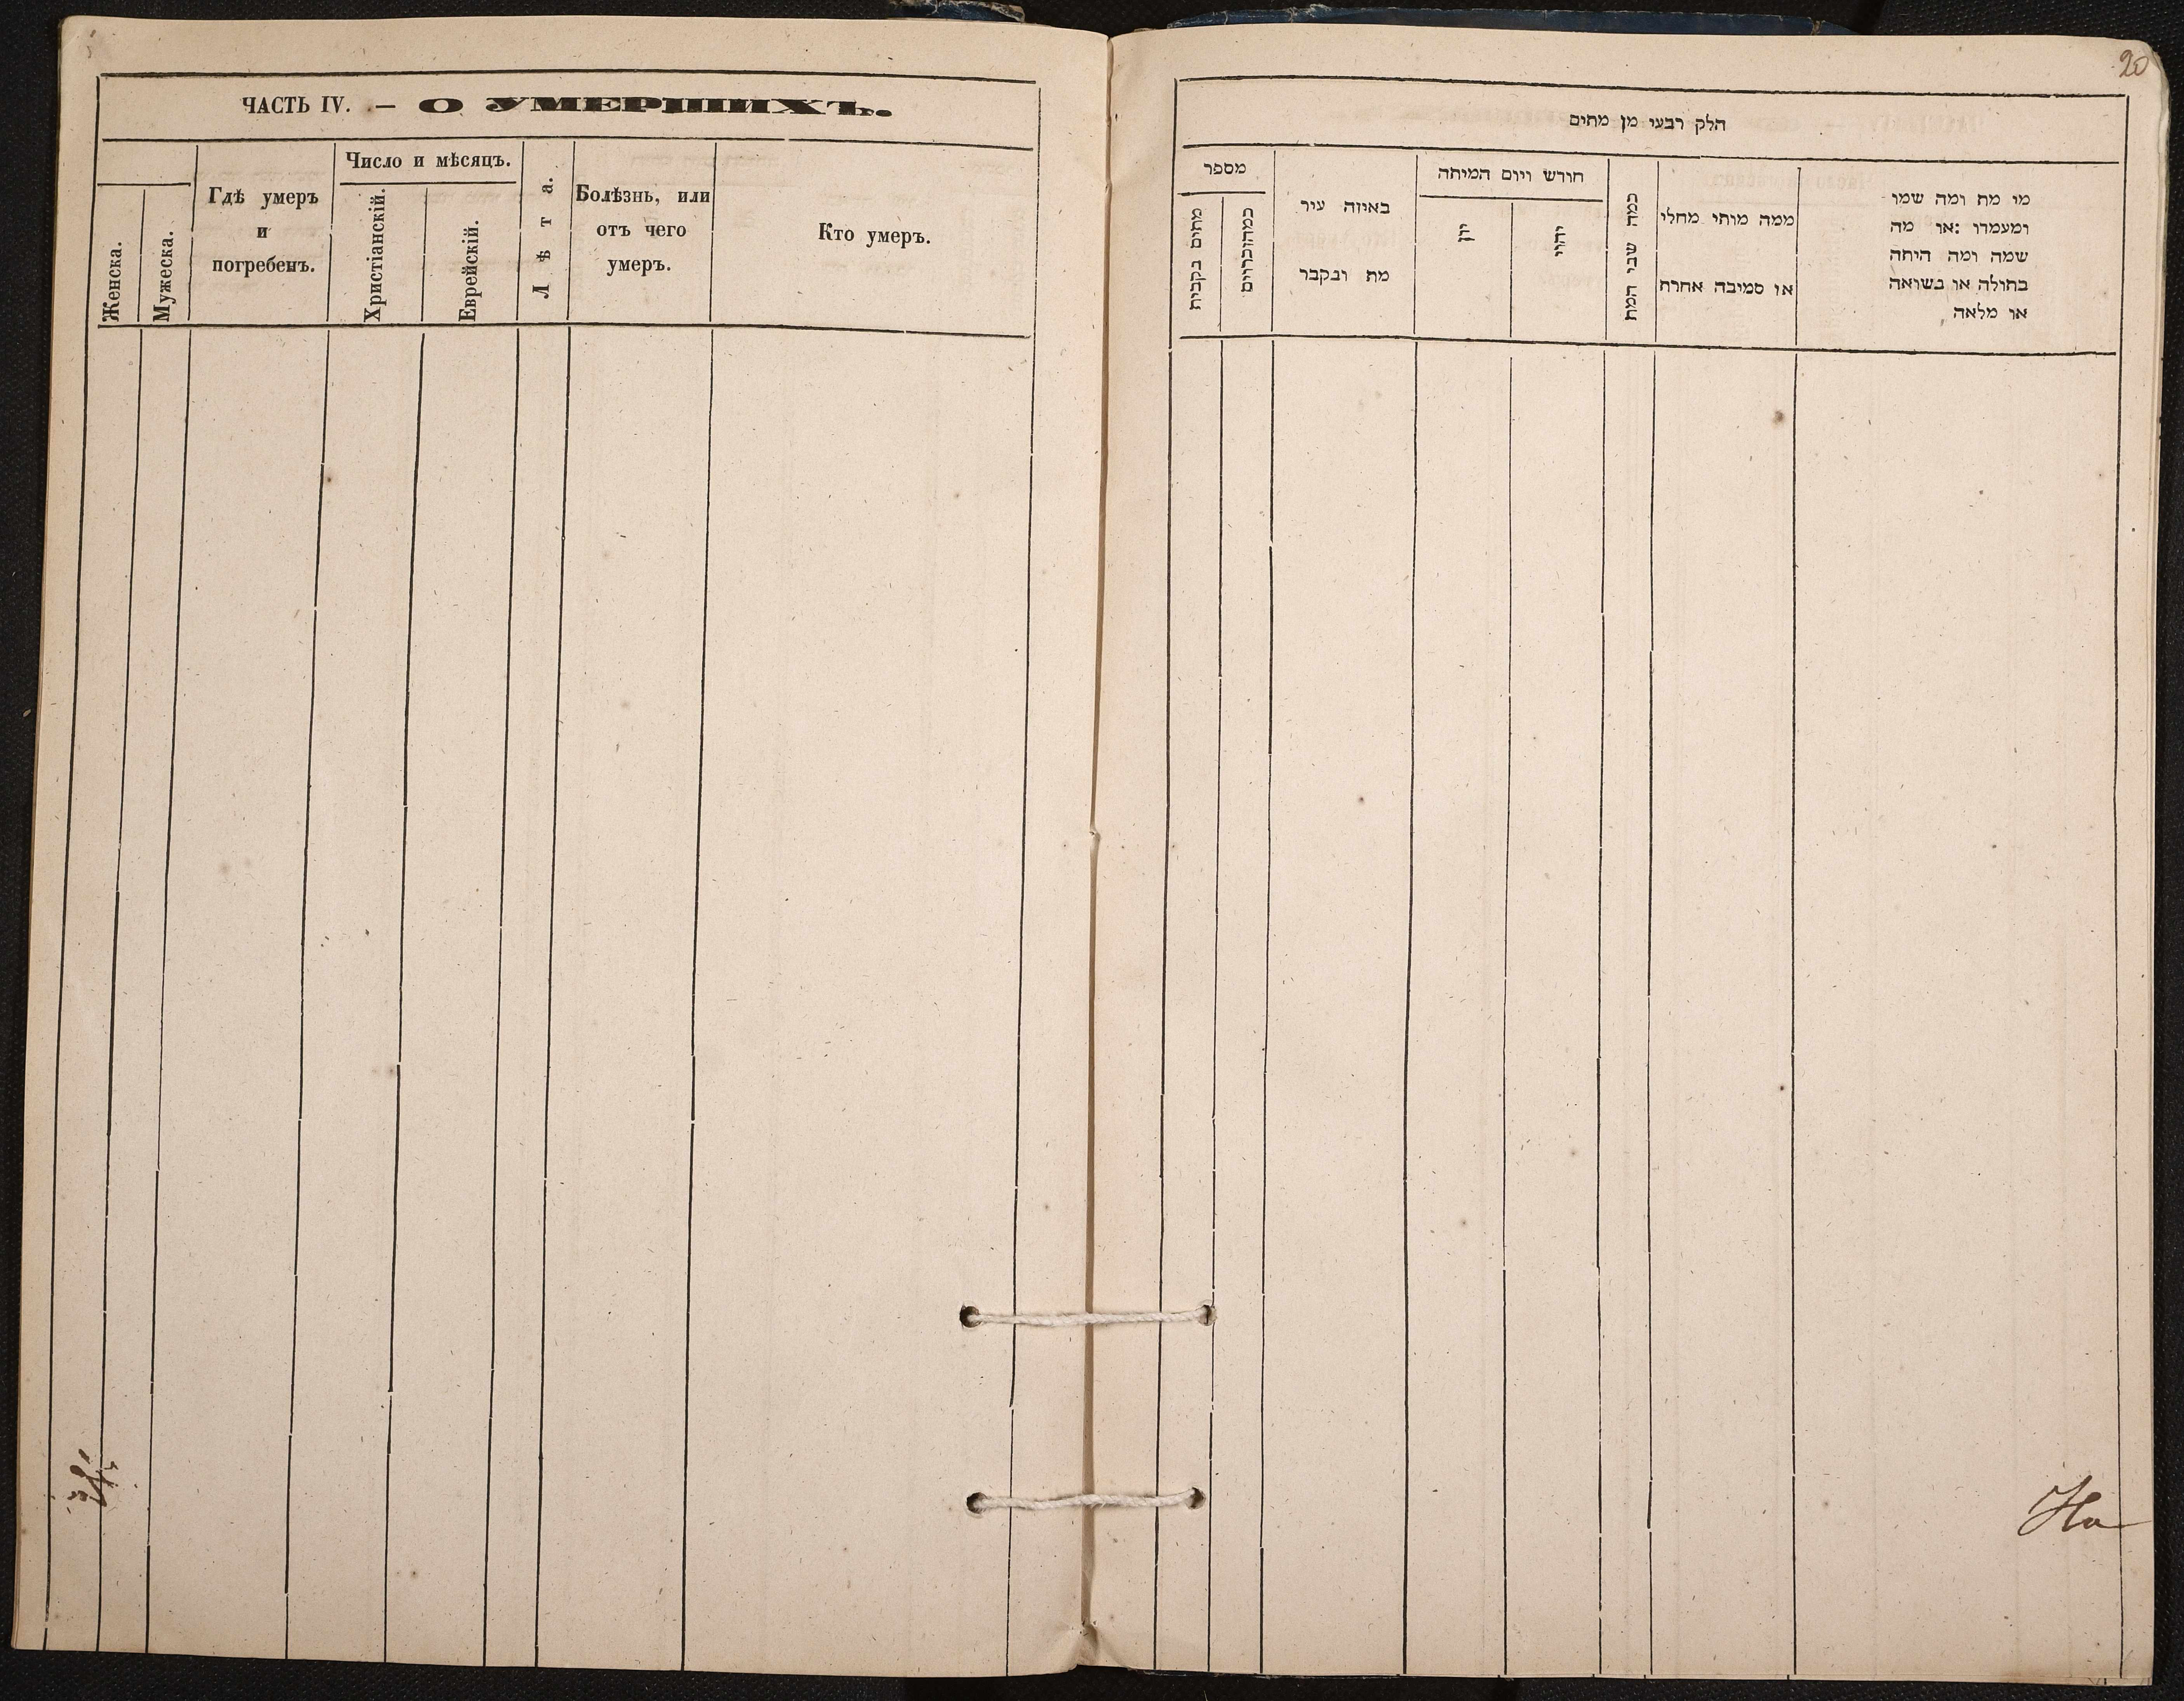 ЧАСТЬ IV. — О УМЕРШИХЪ.
Женска.
Мужеска.
Гдѣ умеръ
и
погребенъ.
Число и мѣсяцъ.
Христіанскій.
Еврейскій.
Лѣта.
Болѣзнь, или
отъ чего
умеръ.
Кто умеръ.
20
חלק רבעי מן מתים
מספר
מתים בקבית
כמהזכרוים
באיזה עיר
מת ונקבר
חורש ויום המיתה
יון
יהוי
כמה שני המת
ממה מותי מחלי
או סמיבה אחרת
מי מת ומה שמו
ומעמדו :או מה
שמה ומה היתה
בתולה או נשואה
או מלאה
На